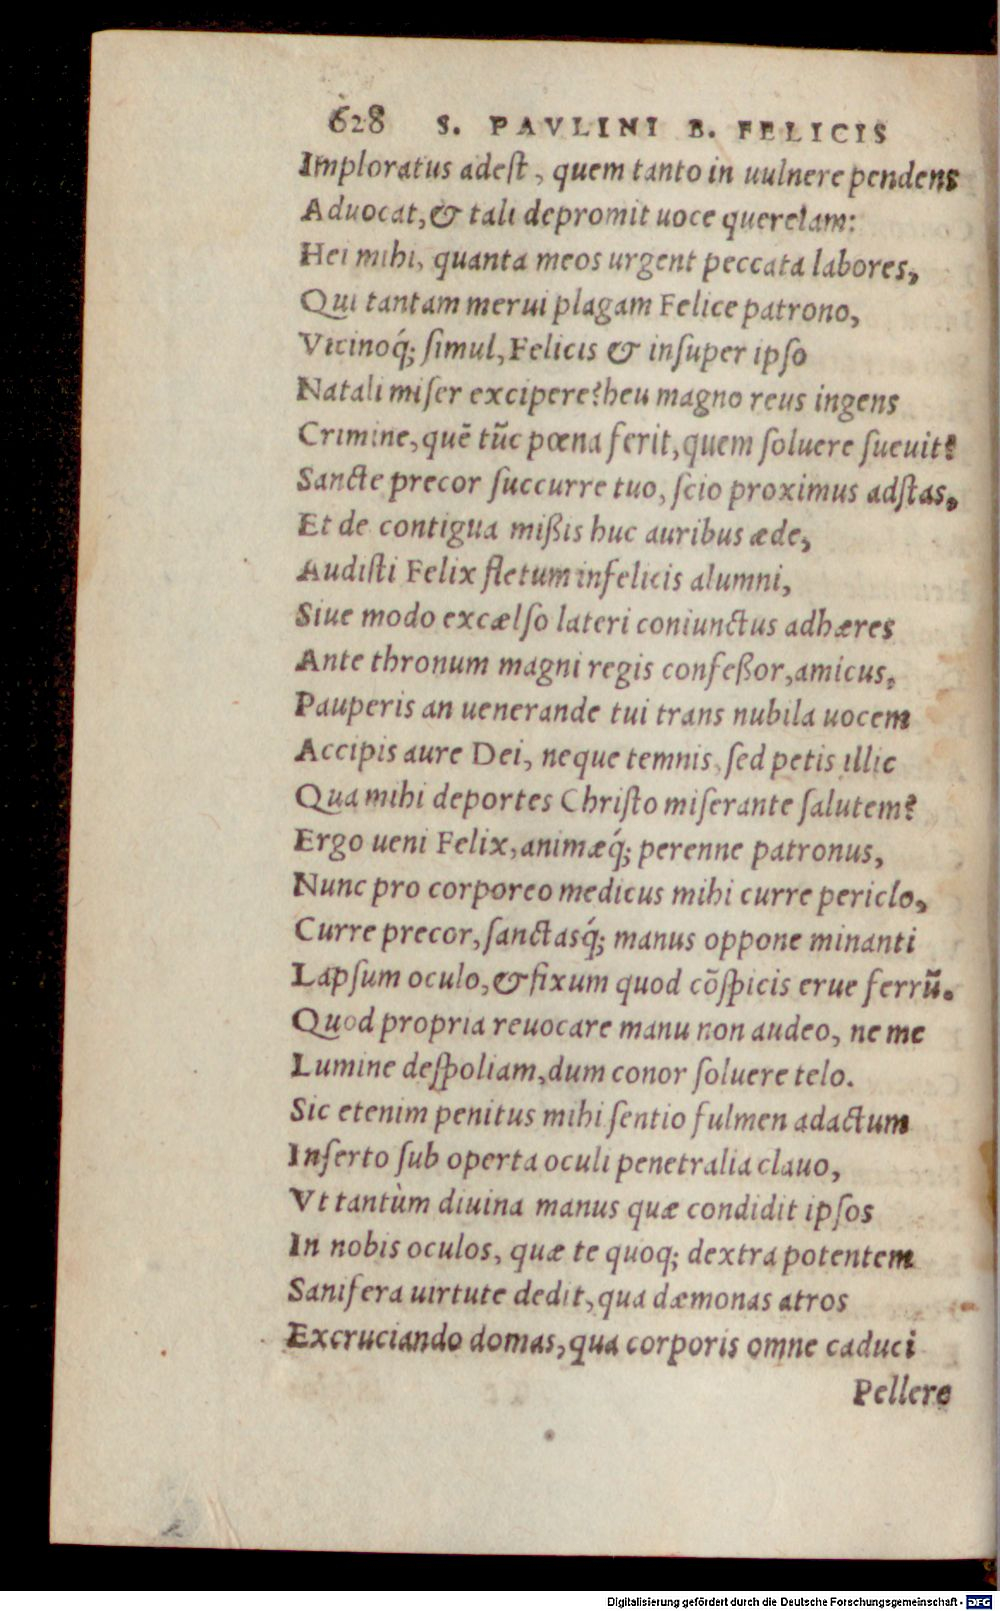 628 S. PAVLINI B. FELICIS
Imploratus adeſt, quem tanto in uulnere pendens
Aduocat, & tali depromit uoce querelam:
Hei mihi, quanta meos urgent peccata labores,
Qui tantam merui plagam Felice patrono,
Vicinoq́; ſimul, Felicis & inſuper ipſo
Natali miſer excipere? heu magno reus ingens
Crimine, quē tūc pœna ferit, quem ſoluere ſueuit?
Sancte precor ſuccurre tuo, ſcio proximus adſtas,
Et de contigua mißis huc auribus æde,
Audiſti Felix fletum infelicis alumni,
Siue modo excælſo lateri coniunctus adhæres
Ante thronum magni regis confeßor, amicus,
Pauperis an uenerande tui trans nubila uocem
Accipis aure Dei, neque temnis, ſed petis illic
Qua mihi deportes Chriſto miſerante ſalutem?
Ergo ueni Felix, animæq́; perenne patronus,
Nunc pro corporeo medicus mihi curre periclo,
Curre precor, ſanctasq́; manus oppone minanti
Lapſum oculo, & fixum quod cōſpicis erue ferrū.
Quod propria reuocare manu non audeo, ne me
Lumine deſpoliam, dum conor ſoluere telo.
Sic etenim penitus mihi ſentio fulmen adactum
Inſerto ſub operta oculi penetralia clauo,
Vt tantùm diuina manus quæ condidit ipſos
In nobis oculos, quæ te quoq; dextra potentem
Sanifera uirtute dedit, qua dæmonas atros
Excruciando domas, qua corporis omne caduci
Pellere
Digitalisierung gefördert durch die Deutsche Forschungsgemeinschaft - DFG